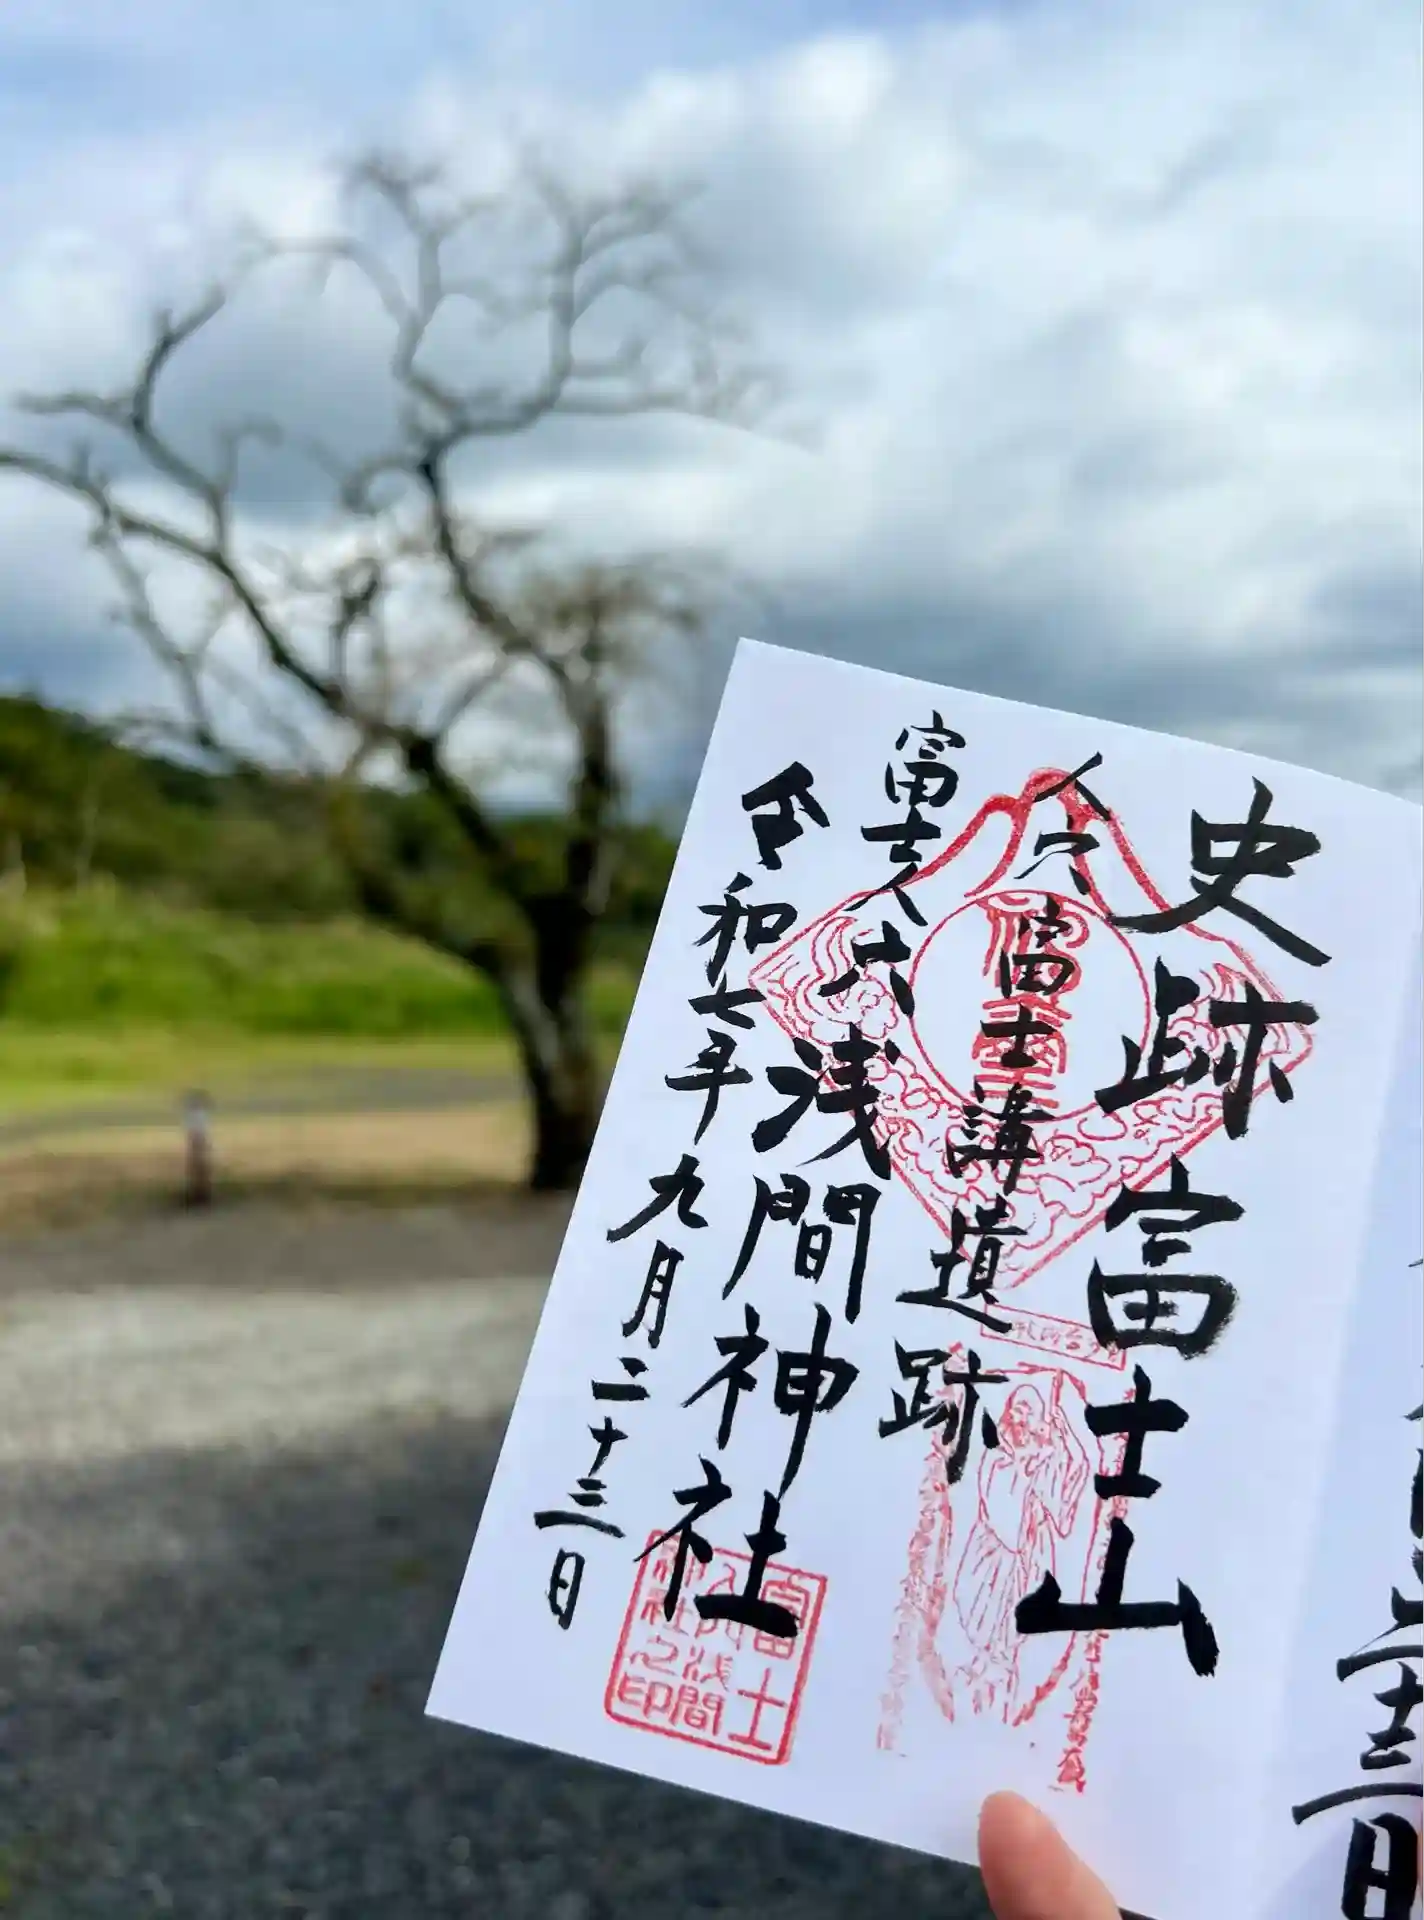 史跡富士山
人穴富士講遺跡
富士人穴浅間神社
令和七年九月二十三日
富士
人穴浅間
神社之印